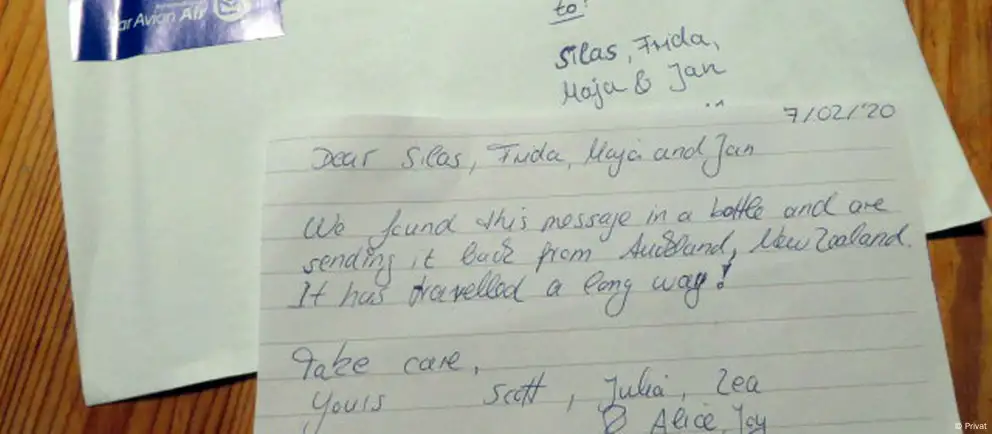 Par Avion Air
to:
Silas, Frida,
Maja & Jan
7/02/'20
Dear Silas, Frida, Maja and Jan
We found this message in a bottle and are
sending it back from Auckland, New Zealand.
It has travelled a long way!
Take care,
Yours Scott, Julia, Zea
& Alice, Joy
© Privat